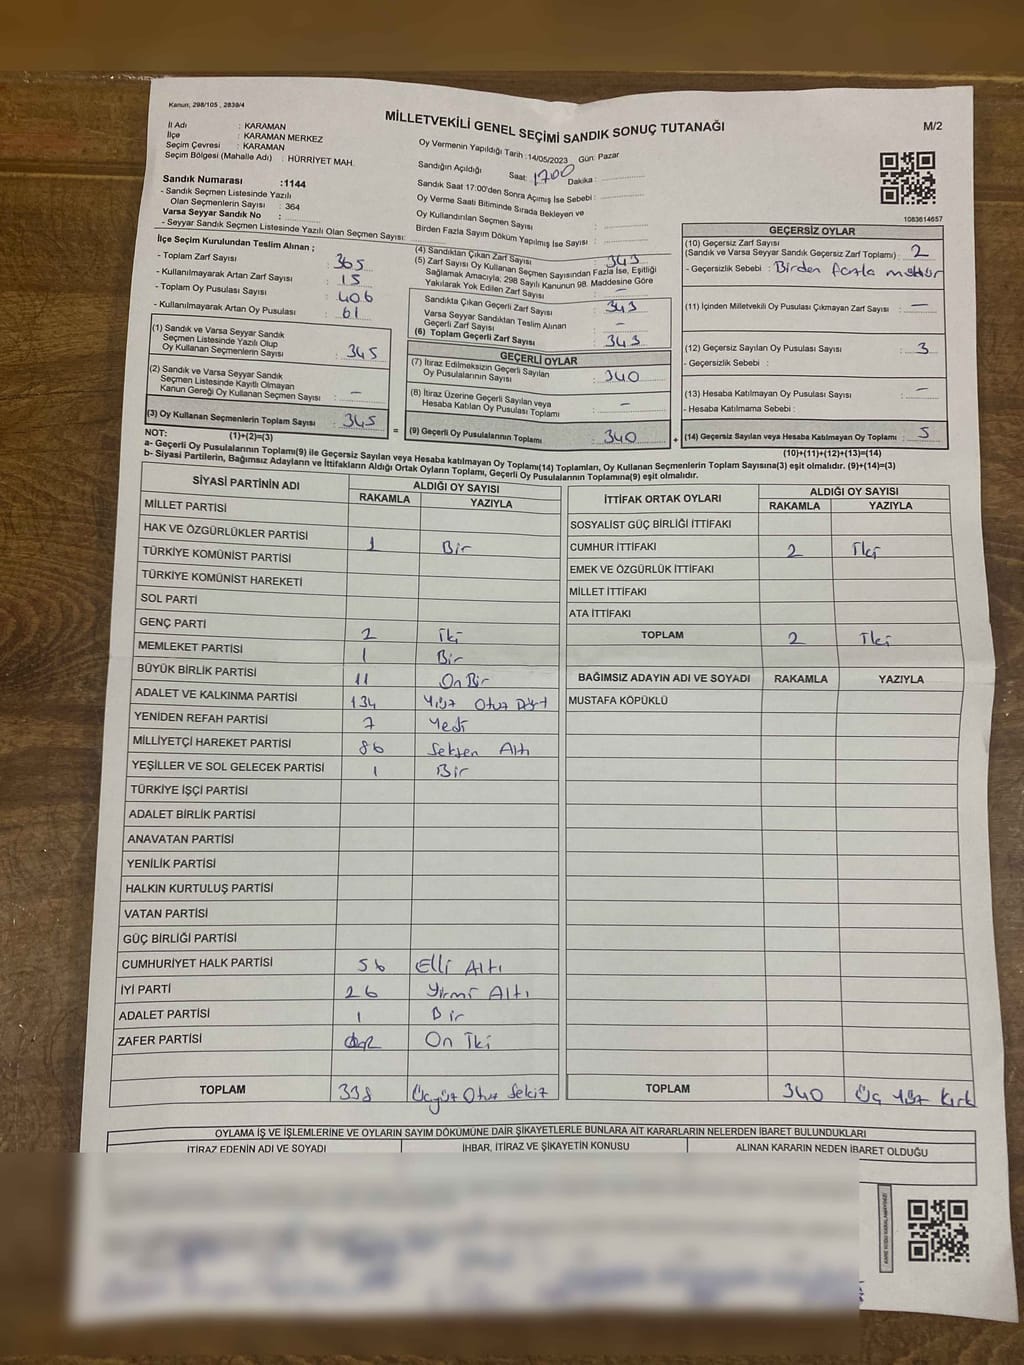 Kanun, 298/105 , 2839/4
MİLLETVEKİLİ GENEL SEÇİMİ SANDIK SONUÇ TUTANAĞI
M/2
İl Adı : KARAMAN
İlçe : KARAMAN MERKEZ
Seçim Çevresi : KARAMAN
Seçim Bölgesi (Mahalle Adı) : HÜRRİYET MAH.
Sandık Numarası :1144
- Sandık Seçmen Listesinde Yazılı
Olan Seçmenlerin Sayısı : 364
Varsa Seyyar Sandık No :
- Seyyar Sandık Seçmen Listesinde Yazılı Olan Seçmen Sayısı:
Oy Vermenin Yapıldığı Tarih :14/05/2023 Gün: Pazar
Sandığın Açıldığı Saat: 1700 Dakika :
Sandık Saat 17:00'den Sonra Açımış İse Sebebi :
Oy Verme Saati Bitiminde Sırada Bekleyen ve
Oy Kullandırılan Seçmen Sayısı :
Birden Fazla Sayım Döküm Yapılmış İse Sayısı :
1083614657
İlçe Seçim Kurulundan Teslim Alınan ;
- Toplam Zarf Sayısı : 365
- Kullanılmayarak Artan Zarf Sayısı : 15
- Toplam Oy Pusulası Sayısı : 406
- Kullanılmayarak Artan Oy Pusulası : 61
(1) Sandık ve Varsa Seyyar Sandık
Seçmen Listesinde Yazılı Olup
Oy Kullanan Seçmenlerin Sayısı : 345
(2) Sandık ve Varsa Seyyar Sandık
Seçmen Listesinde Kayıtlı Olmayan
Kanun Gereği Oy Kullanan Seçmen Sayısı : -
(3) Oy Kullanan Seçmenlerin Toplam Sayısı : 345
(1)+(2)=(3)
(4) Sandıktan Çıkan Zarf Sayısı : 343
(5) Zarf Sayısı Oy Kullanan Seçmen Sayısından Fazla İse, Eşitliği
Sağlamak Amacıyla; 298 Sayılı Kanunun 98. Maddesine Göre
Yakılarak Yok Edilen Zarf Sayısı : -
Sandıkta Çıkan Geçerli Zarf Sayısı : 343
Varsa Seyyar Sandıktan Teslim Alınan
Geçerli Zarf Sayısı : -
(6) Toplam Geçerli Zarf Sayısı : 343
GEÇERLİ OYLAR
(7) İtiraz Edilmeksizin Geçerli Sayılan
Oy Pusulalarının Sayısı : 340
(8) İtiraz Üzerine Geçerli Sayılan veya
Hesaba Katılan Oy Pusulası Toplamı : -
= (9) Geçerli Oy Pusulalarının Toplamı : 340 +
GEÇERSİZ OYLAR
(10) Geçersiz Zarf Sayısı
(Sandık ve Varsa Seyyar Sandık Geçersiz Zarf Toplamı) : 2
- Geçersizlik Sebebi : Birden fazla mühür
(11) İçinden Milletvekili Oy Pusulası Çıkmayan Zarf Sayısı : -
(12) Geçersiz Sayılan Oy Pusulası Sayısı : 3
- Geçersizlik Sebebi :
(13) Hesaba Katılmayan Oy Pusulası Sayısı : -
- Hesaba Katılmama Sebebi :
(14) Geçersiz Sayılan veya Hesaba Katılmayan Oy Toplamı : 5
(10)+(11)+(12)+(13)=(14)
NOT:
a- Geçerli Oy Pusulalarının Toplamı(9) ile Geçersiz Sayılan veya Hesaba Katılmayan Oy Toplam(14) Toplamları, Oy Kullanan Seçmenlerin Toplam Sayısına(3) eşit olmalıdır. (9)+(14)=(3)
b- Siyasi Partilerin, Bağımsız Adayların ve İttifakların Aldığı Ortak Oyların Toplamı, Geçerli Oy Pusulalarının Toplamına(9) eşit olmalıdır.
SİYASİ PARTİNİN ADI ALDIĞI OY SAYISI
RAKAMLA YAZIYLA
MİLLET PARTİSİ
HAK VE ÖZGÜRLÜKLER PARTİSİ 1 Bir
TÜRKİYE KOMÜNİST PARTİSİ
TÜRKİYE KOMÜNİST HAREKETİ
SOL PARTİ
GENÇ PARTİ 2 İki
MEMLEKET PARTİSİ 1 Bir
BÜYÜK BİRLİK PARTİSİ 11 On Bir
ADALET VE KALKINMA PARTİSİ 134 Yüz Otuz Dört
YENİDEN REFAH PARTİSİ 7 Yedi
MİLLİYETÇİ HAREKET PARTİSİ 86 Seksen Altı
YEŞİLLER VE SOL GELECEK PARTİSİ 1 Bir
TÜRKİYE İŞÇİ PARTİSİ
ADALET BİRLİK PARTİSİ
ANAVATAN PARTİSİ
YENİLİK PARTİSİ
HALKIN KURTULUŞ PARTİSİ
VATAN PARTİSİ
GÜÇ BİRLİĞİ PARTİSİ
CUMHURİYET HALK PARTİSİ 56 Elli Altı
İYİ PARTİ 26 Yirmi Altı
ADALET PARTİSİ 1 Bir
ZAFER PARTİSİ On İki
TOPLAM 338 Üçyüz Otuz Sekiz
İTTİFAK ORTAK OYLARI ALDIĞI OY SAYISI
RAKAMLA YAZIYLA
SOSYALİST GÜÇ BİRLİĞİ İTTİFAKI
CUMHUR İTTİFAKI 2 İki
EMEK VE ÖZGÜRLÜK İTTİFAKI
MİLLET İTTİFAKI
ATA İTTİFAKI
TOPLAM 2 İki
BAĞIMSIZ ADAYIN ADI VE SOYADI RAKAMLA YAZIYLA
MUSTAFA KÖPÜKLÜ
TOPLAM 340 Üç Yüz Kırk
OYLAMA İŞ VE İŞLEMLERİNE VE OYLARIN SAYIM DÖKÜMÜNE DAİR ŞİKAYETLERLE BUNLARA AİT KARARLARIN NELERDEN İBARET BULUNDUKLARI
İTİRAZ EDENİN ADI VE SOYADI İHBAR, İTİRAZ VE ŞİKAYETİN KONUSU ALINAN KARARIN NEDEN İBARET OLDUĞU